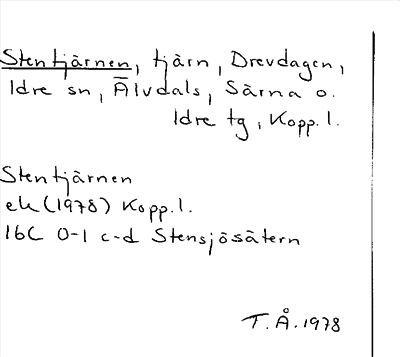 Stentjärnen, tjärn, Drevdagen,
Idre sn, Älvdals, Särna o.
Idre tg, Kopp.l.
Stentjärnen
ek (1978) Kopp.l.
16C 0-1 c-d Stensjösätern
T.Å. 1978